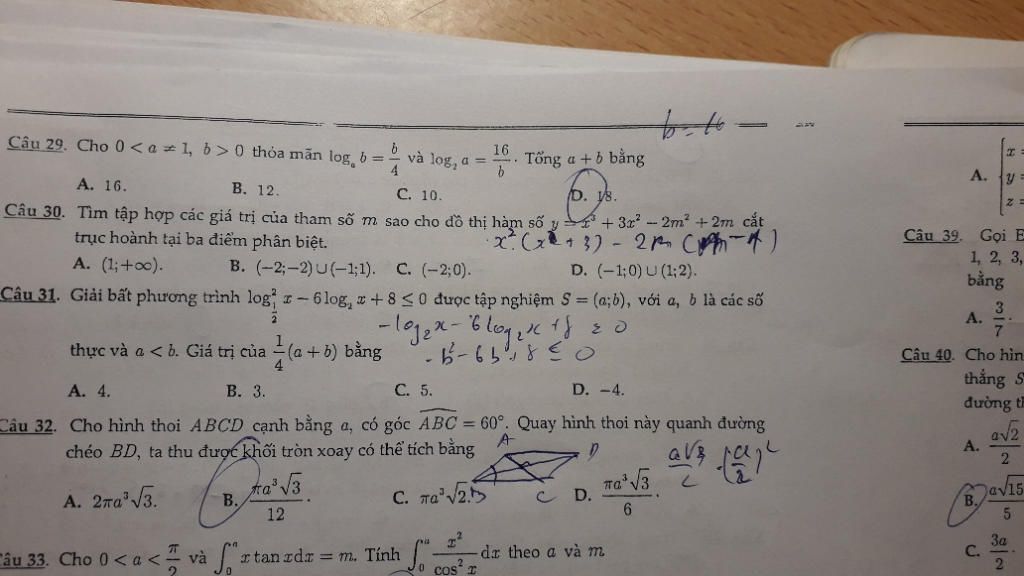 b = 16
Câu 29. Cho 0 < a ≠ 1, b > 0 thỏa mãn logₐ b = b/4 và log₂ a = 16/b. Tổng a + b bằng
A. 16. B. 12. C. 10. D. 18.
Câu 30. Tìm tập hợp các giá trị của tham số m sao cho đồ thị hàm số y = x³ + 3x² − 2m² + 2m cắt
trục hoành tại ba điểm phân biệt.
A. (1;+∞). B. (−2;−2)∪(−1;1). C. (−2;0). D. (−1;0)∪(1;2).
Câu 31. Giải bất phương trình log²_{1/2} x − 6log₂ x + 8 ≤ 0 được tập nghiệm S = (a;b), với a, b là các số
thực và a < b. Giá trị của 1/4(a + b) bằng
A. 4. B. 3. C. 5. D. −4.
Câu 32. Cho hình thoi ABCD cạnh bằng a, có góc ABC = 60°. Quay hình thoi này quanh đường
chéo BD, ta thu được khối tròn xoay có thể tích bằng
A D
B C
A. 2πa³√3. B. πa³√3/12. C. πa³√2. D. πa³√3/6.
Câu 33. Cho 0 < a < π/2 và ∫₀ᵃ x tan xdx = m. Tính ∫₀ᵃ x²/cos² x dx theo a và m
A. { x =
y =
z =
Câu 39. Gọi
1, 2, 3,
bằng
A. 3/7.
Câu 40. Cho
thẳng S
đường
A. a√2/2
B. a√15/5
C. 3a/2.